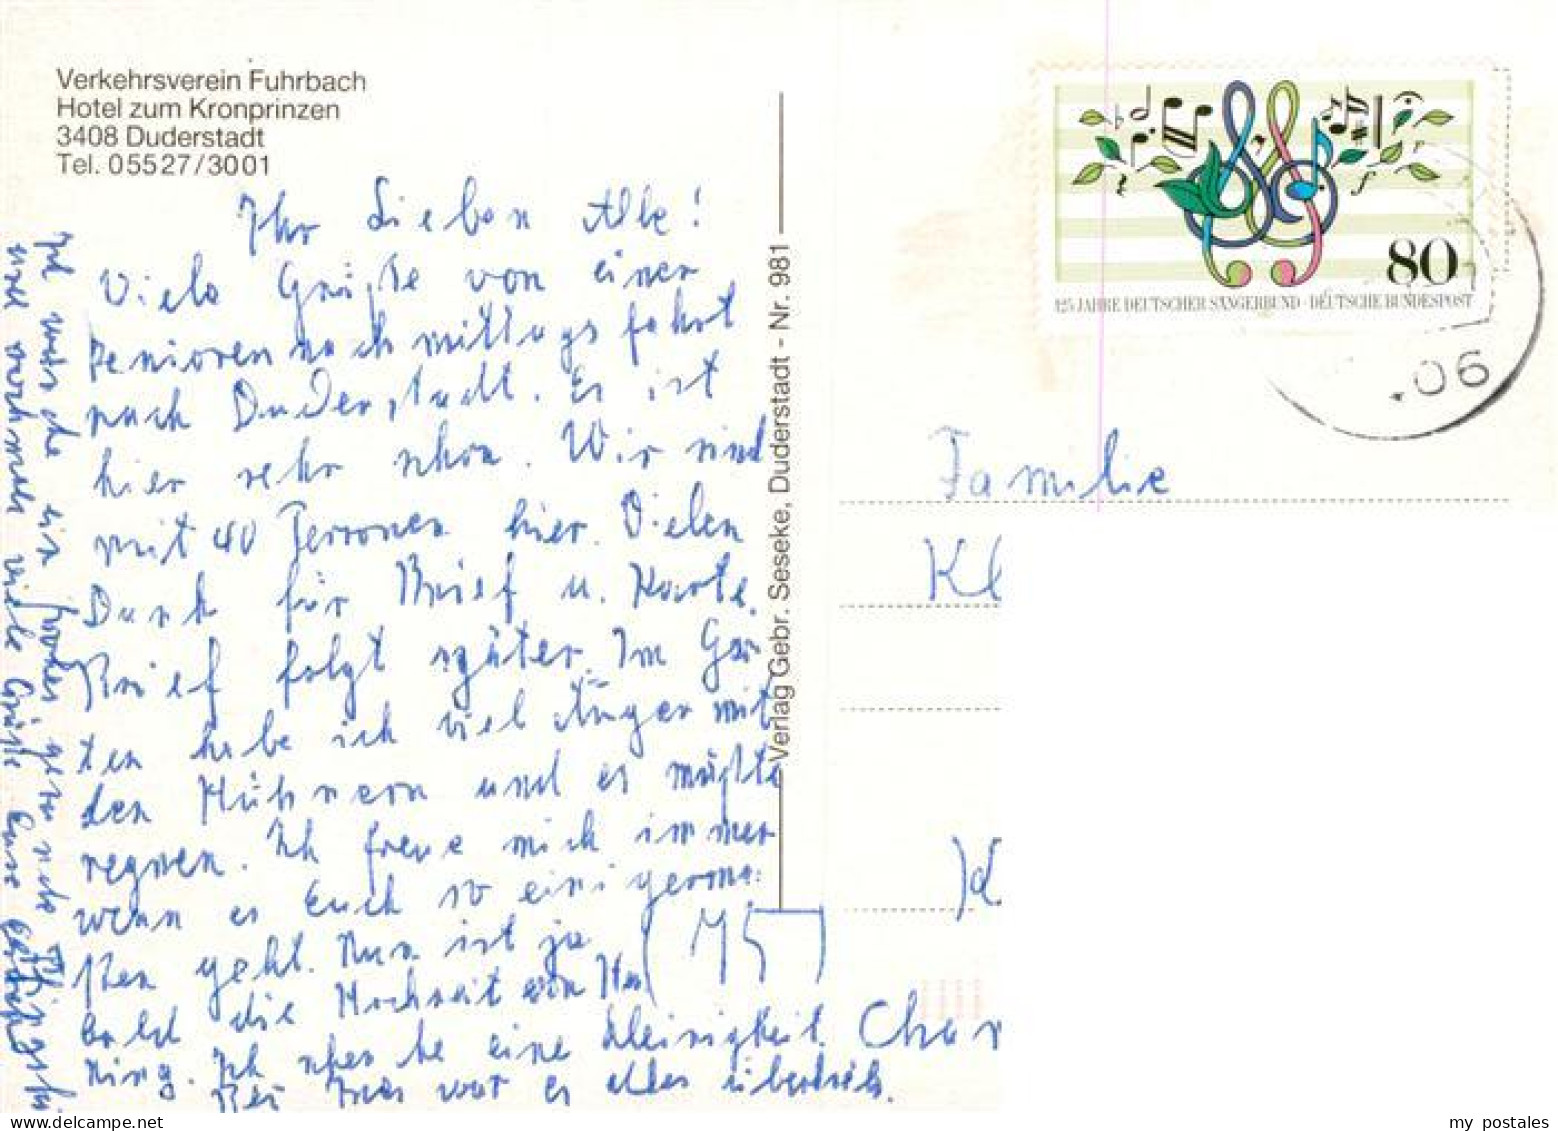 Verkehrsverein Fuhrbach
Hotel zum Kronprinzen
3408 Duderstadt
Tel. 05527/3001
Ihr Lieben Alle!
Viele Grüße von einer
Seniorennachmittagsfahrt
nach Duderstadt. Es ist
hier sehr schön. Wir sind
mit 40 Personen hier. Vielen
Dank für Brief u. Karte.
Brief folgt später. Im Gar
ten habe ich viel Ärger mit
den Hühnern und es müßte
regnen. Ich freue mich immer
wenn es Euch so einigerma:
ßen geht. Nun ist ja
bald die Hochzeit von Hen
ning. Ich
eine Kleinigkeit.
Bei
war es alles
Ich wünsche ein frohes
und nochmals viele Grüße Eure
(75)
Verlag Gebr. Seseke, Duderstadt - Nr. 981
80
125 JAHRE DEUTSCHER SÄNGERBUND · DEUTSCHE BUNDESPOST
06
Familie
Kl
my postales